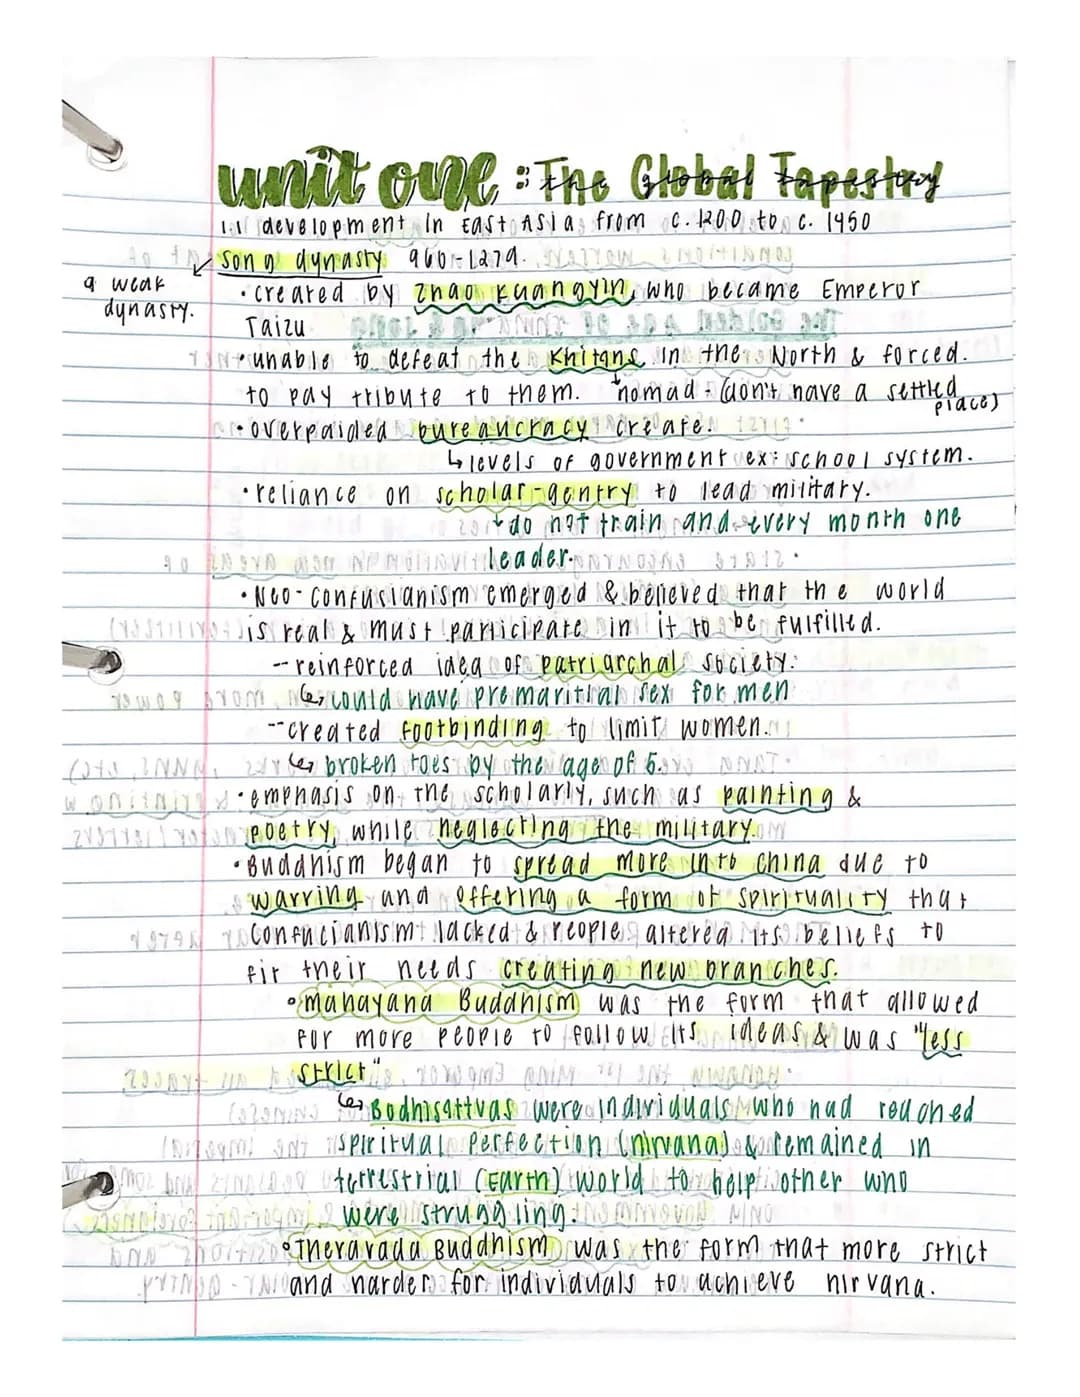 unit one : The Global Tapestry
1.1 development in East Asia from c. 1200 to c. 1450
Song dynasty 960-1279.
a weak
dynasty.
• created by Zhao Kuangyin, who became Emperor
Taizu
• unable to defeat the Khitans in the North & forced
to pay tribute to them. nomad - (don't have a settled
place)
• overpaided bureaucracy create.
↳ levels of government ex: school system.
• reliance on scholar-gentry to lead military.
do not train and every month one
leader.
• Neo-Confusianism emerged & believed that the world
is real & must participate in it to be fulfilled.
-- reinforced idea of patriarchal society.
↳ could have premaritial sex for men
-- created footbinding to limit women.
↳ broken toes by the age of 5.
• emphasis on the scholarly, such as painting &
poetry, while neglecting the military.
• Buddhism began to spread more into China due to
warring and offering a form of spirituality that
Confucianism lacked & people altered its beliefs to
fit their needs creating new branches.
• Mahayana Buddhism was the form that allowed
for more people to follow its ideas & was "less
strict"
↳ Bodhisattvas were individuals who had reached
spiritual perfection (nirvana) & remained in
terrestrial (Earth) world to help other who
were struggling.
• Theravada Buddhism was the form that more strict
and harder for individuals to achieve nirvana.